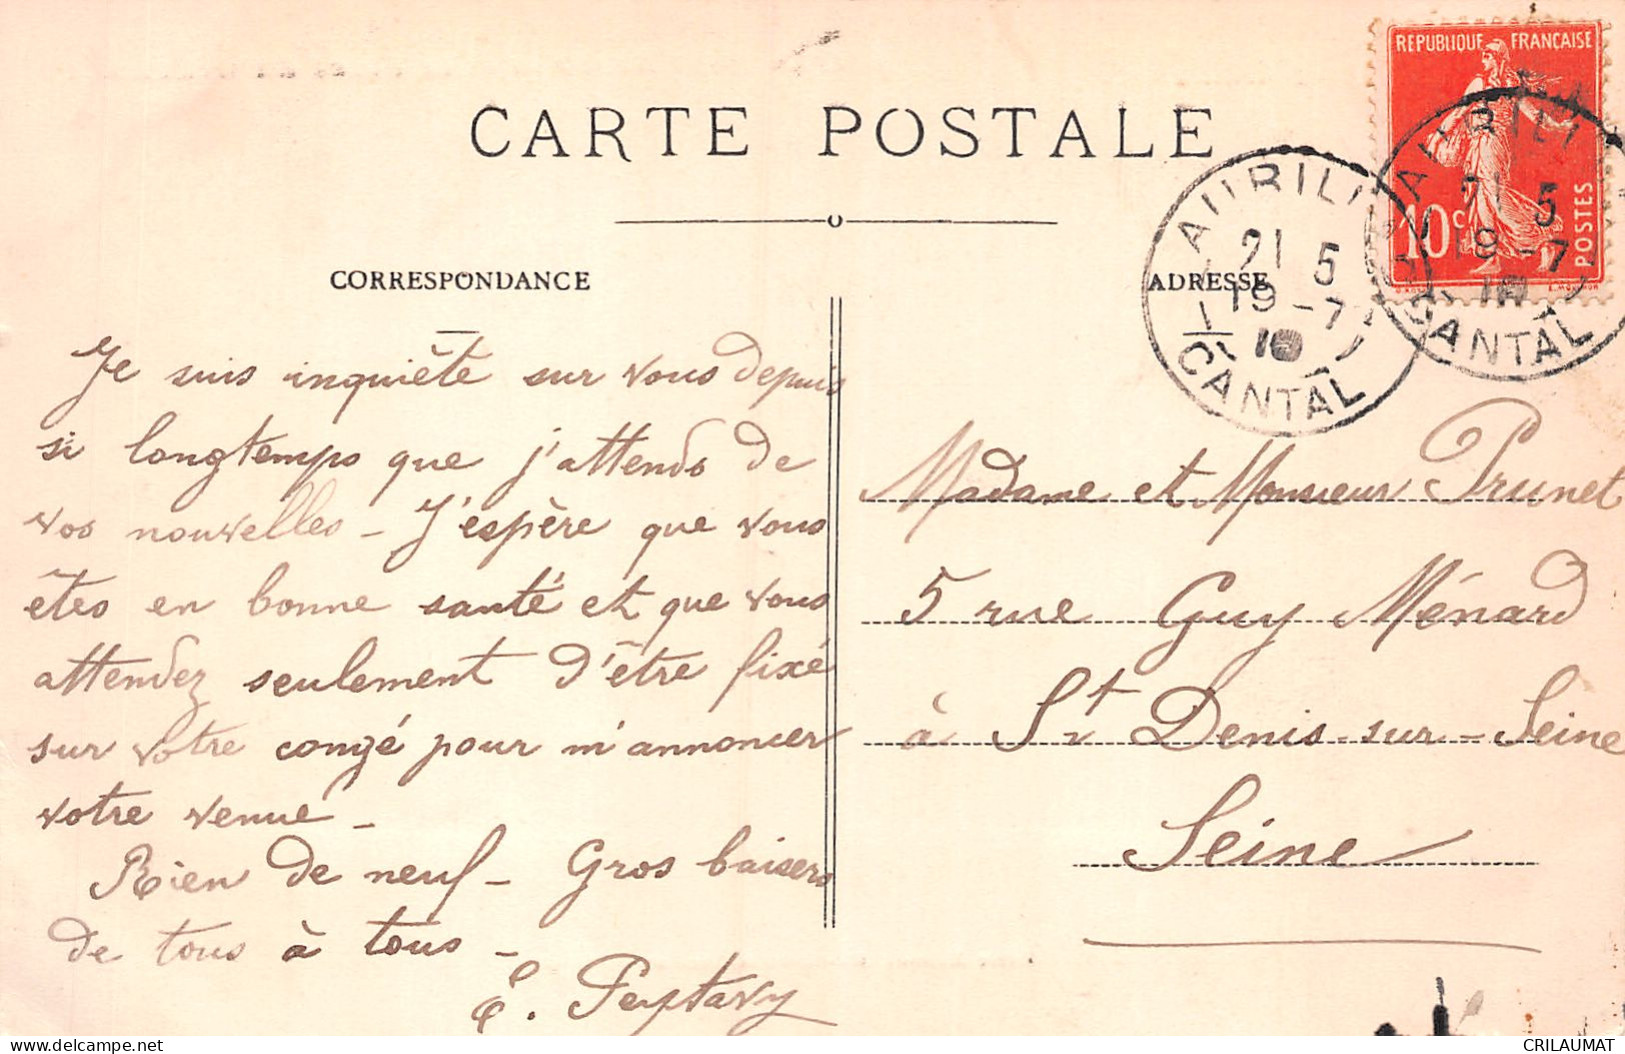 CARTE POSTALE
REPUBLIQUE FRANÇAISE
10c POSTES
CORRESPONDANCE
ADRESSE
21 5
19 - 7
10
CANTAL
21 5
19 - 7
10
CANTAL
Je suis inquiète sur vous depuis
si longtemps que j'attends de
vos nouvelles - J'espère que vous
êtes en bonne santé et que vous
attendez seulement d'être fixé
sur votre congé pour m'annoncer
votre venue -
Rien de neuf - Gros baisers
de tous à tous -
E. Peytavy
Madame et Monsieur Prunet
5 rue Guy Ménard
à St Denis-sur-Seine
Seine
delcampe.net
CRILAUMAT